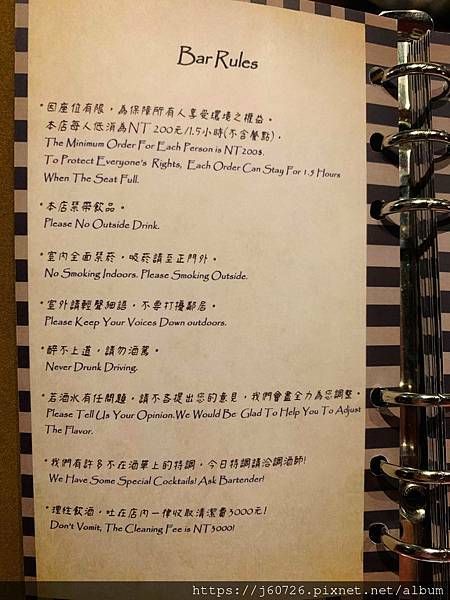 Bar Rules
*因座位有限，為保障所有人享受環境之權益。
本店每人低消為NT 200元/1.5小時(不含餐點)，
The Minimum Order For Each Person is NT200$.
To Protect Everyone's Rights, Each Order Can Stay For 1.5 Hours
When The Seat Full.
*本店禁帶飲品。
Please No Outside Drink.
*室內全面禁菸，吸菸請至正門外。
No Smoking Indoors. Please Smoking Outside.
*室外請輕聲細語，不要打擾鄰居。
Please Keep Your Voices Down outdoors.
*醉不上道，請勿酒駕。
Never Drunk Driving.
*若酒水有任問題，請不吝提出您的意見，我們會盡全力為您調整。
Please Tell Us Your Opinion.We Would Be Glad To Help You To Adjust
The Flavor.
*我們有許多不在酒單上的特調，今日特調請洽調酒師!
We Have Some Special Cocktails! Ask Bartender!
*理性飲酒，吐在店內一律收取清潔費3000元!
Don't Vomit, The Cleaning Fee is NT3000!
https://j60726.pixnet.net/album